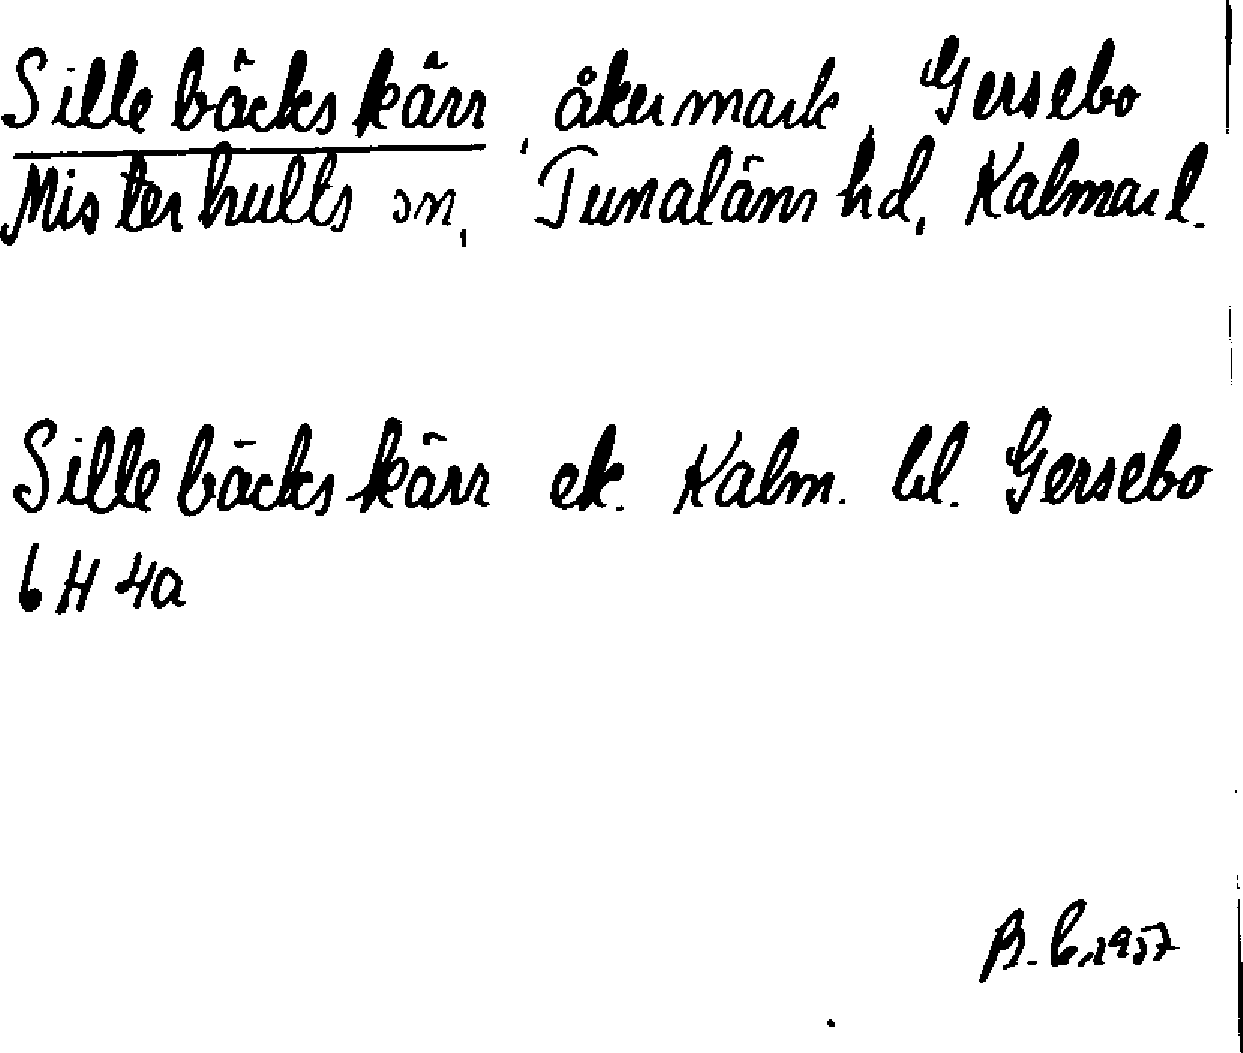 Sillebäckskärr, åkermark, Gersebo
Misterhults sn, Tunaläns hd, Kalmar l.
Sillebäckskärr ek. Kalm. bl. Gersebo
6 H 4a
B. C. 1957